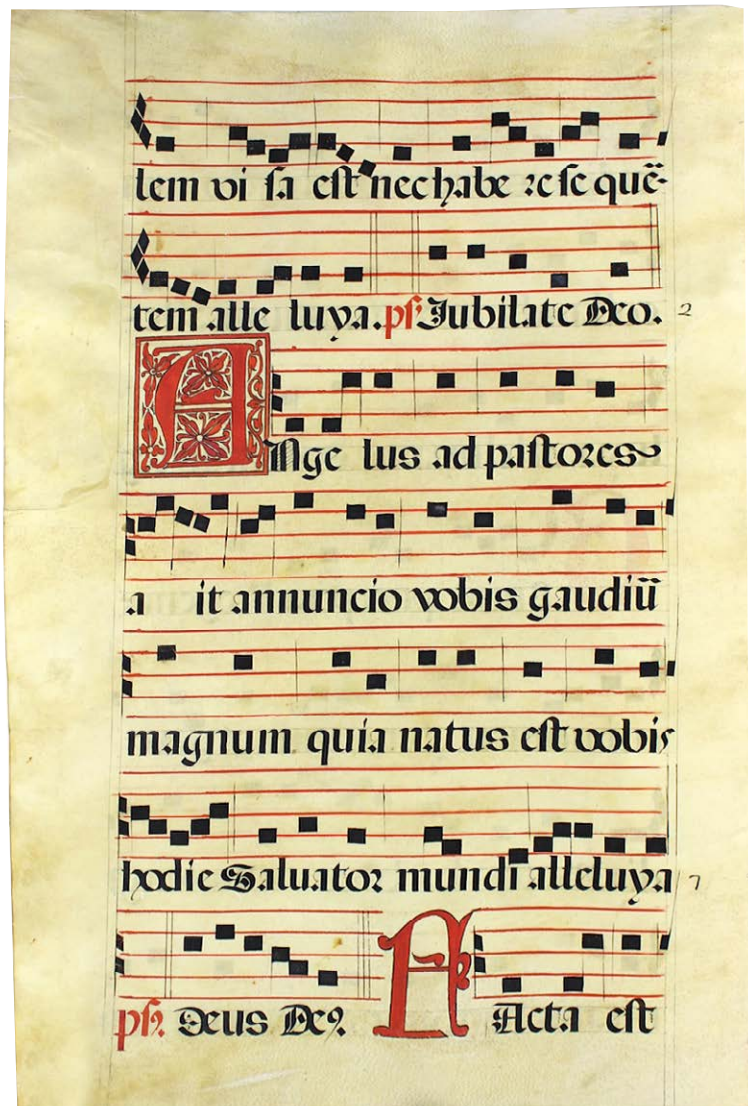 lem vi sa est nec habe re se quē-
tem alle luya. ps. Jubilate Deo. 2
Ange lus ad pastores
a it annuncio vobis gaudiū
magnum quia natus est vobis
hodie Saluator mundi alleluya 7
ps. Deus De9. FActa est